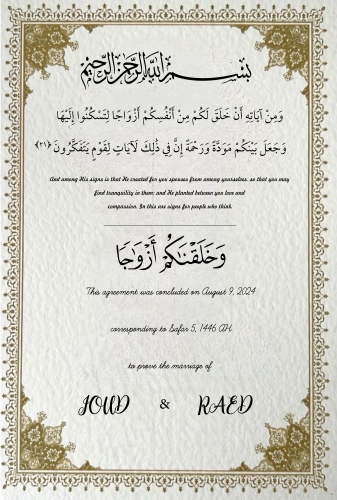 بسم الله الرحمن الرحيم
وَمِنْ آيَاتِهِ أَنْ خَلَقَ لَكُم مِنْ أَنْفُسِكُمْ أَزْوَاجًا لِتَسْكُنُوا إِلَيْهَا
وَجَعَلَ بَيْنَكُمْ مَوَدَّةً وَرَحْمَةً إِنَّ فِي ذَٰلِكَ لَآيَاتٍ لِقَوْمٍ يَتَفَكَّرُونَ ﴿٢١﴾
And among His signs is that He created for you spouses from among yourselves, so that you may
find tranquility in them; and He planted between you love and
compassion. In this are signs for people who think.
وَخَلَقْنَاكُمْ أَزْوَاجًا
This agreement was concluded on August 9, 2024
corresponding to Safar 5, 1446 AH.
to prove the marriage of
JOUD & RAED